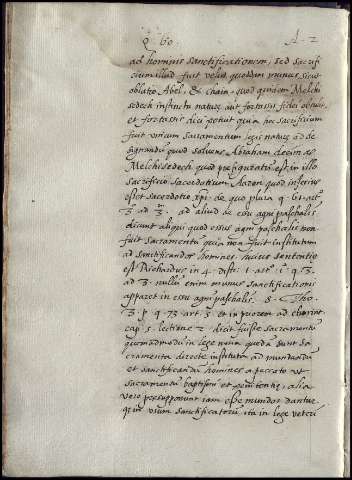 Q. 60. A. 2
ad hominis sanctificationem, sed sacrifi
cium illud fuit velut quoddam munus sicut
oblatio Abel, & chain, quod quidem Melchi
sedech instinctu naturę aut fortassis fidei obtulit
et fortassis dici potuit quia hoc sacrificium
fuit unicum sacramentum legis naturę ad de
signandum quod solveret Abraham decimas
Melchisedech quod prefiguratum est in illo
sacrificio sacerdotium Aaron quod inferius
esset sacerdotio xpi. de quo plura q. 61. art.
3 ad 3. ad aliud de esu agni paschalis
dicunt aliqui quod esus agni paschalis non
fuit sacramentum quia non fuit institutum
ad sanctificandos homines. huius sententię
est Richardus in 4. dist. 1. art. q. 3.
ad 3. nullum enim munus sanctificationis
apparet in esu agni paschalis. S. Tho.
3. p. q. 73. art. 5 et in priorem ad chorint.
cap. 5. lectione 2 dicit fuisse sacramentum
quemadmodum in lege nova quędam sunt sa
cramenta directe instituta ad mundandum
et sanctificandum homines a peccato ut
sacramentum baptismi et penitentię, alia
vero presupponunt iam esse mundos dantur
qui in usum sanctificatorum, ita in lege veteri